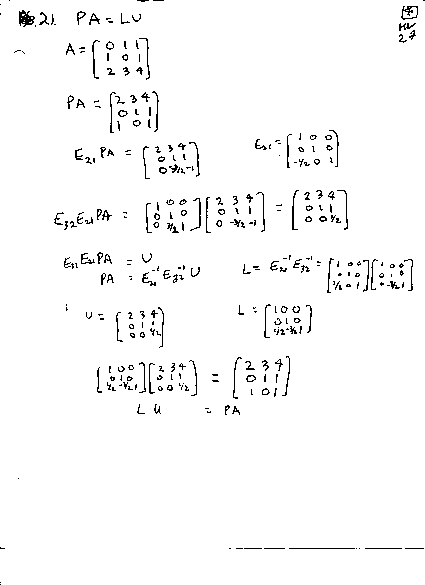 21. PA = LU
HW
27
A = [0 1 1; 1 0 1; 2 3 4]
PA = [2 3 4; 0 1 1; 1 0 1]
E₂₁PA = [2 3 4; 0 1 1; 0 -3/2 -1] E₂₁ = [1 0 0; 0 1 0; -1/2 0 1]
E₃₂E₂₁PA = [1 0 0; 0 1 0; 0 3/2 1] [2 3 4; 0 1 1; 0 -3/2 -1] = [2 3 4; 0 1 1; 0 0 1/2]
E₃₂E₂₁PA = U
PA = E₂₁⁻¹E₃₂⁻¹U L = E₂₁⁻¹E₃₂⁻¹ = [1 0 0; 0 1 0; 1/2 0 1] [1 0 0; 0 1 0; 0 -3/2 1]
U = [2 3 4; 0 1 1; 0 0 1/2] L = [1 0 0; 0 1 0; 1/2 -3/2 1]
[1 0 0; 0 1 0; 1/2 -3/2 1] [2 3 4; 0 1 1; 0 0 1/2] = [2 3 4; 0 1 1; 1 0 1]
L U = PA